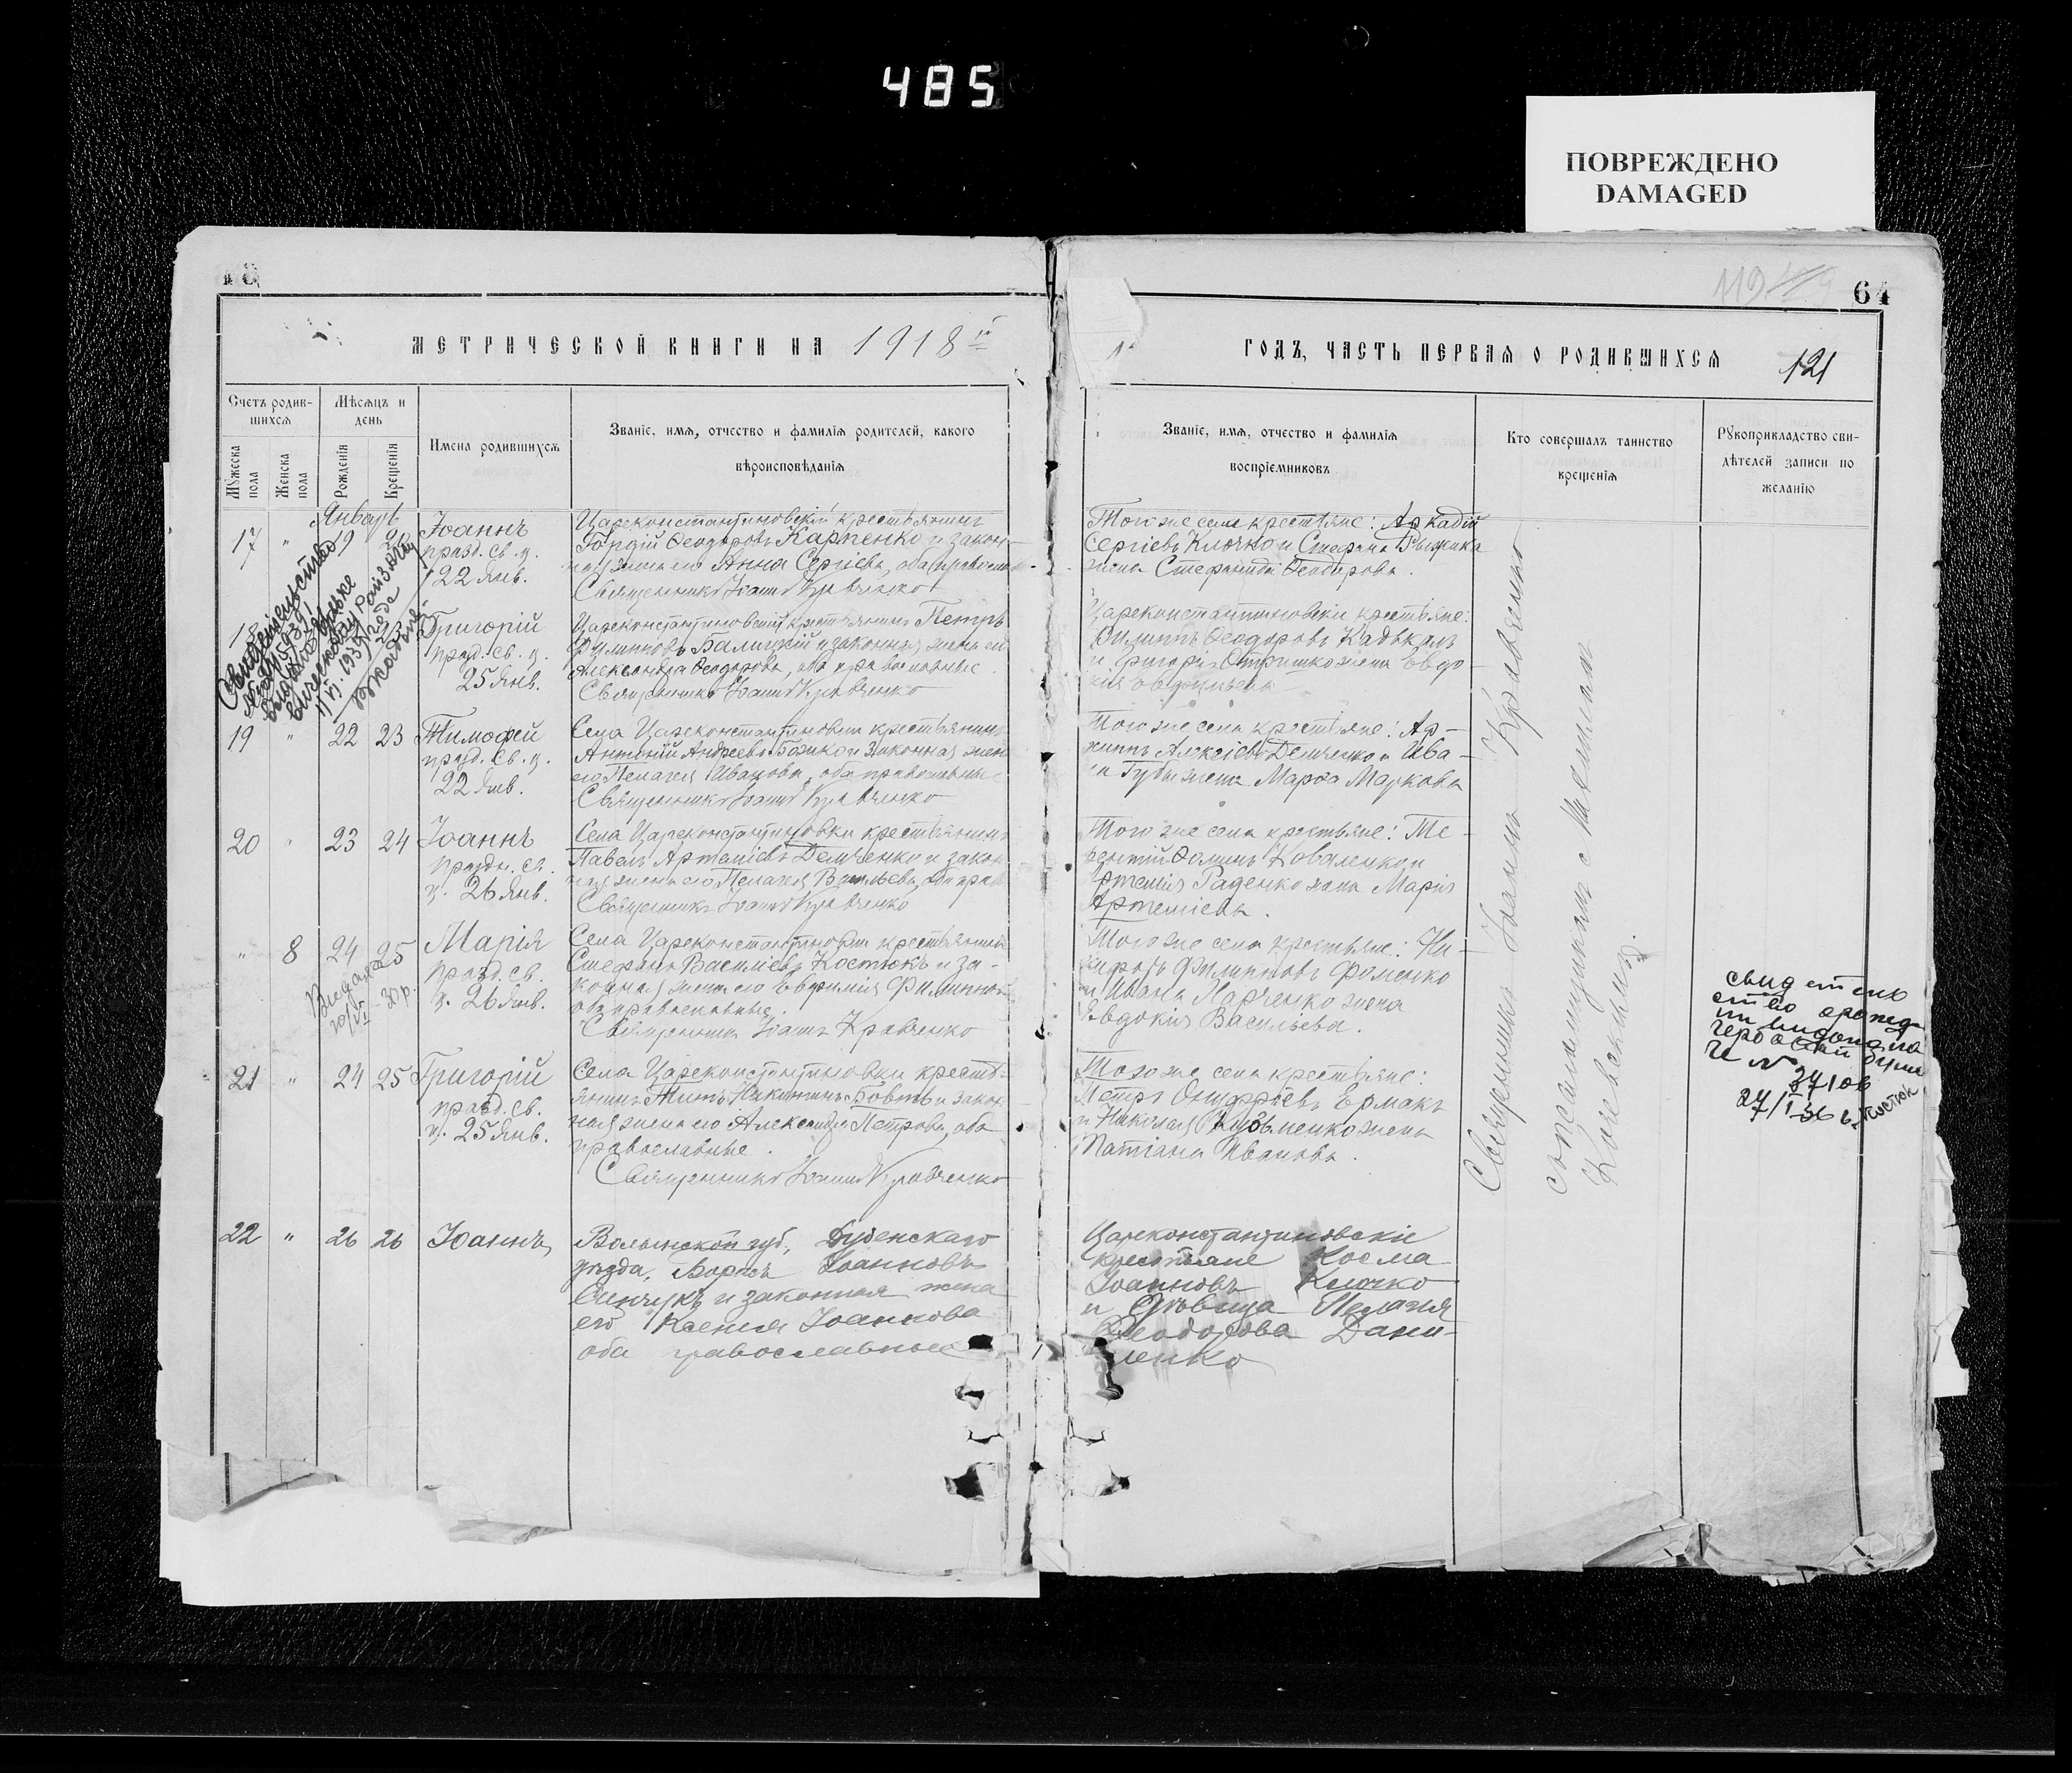 485
ПОВРЕЖДЕНО
DAMAGED
64
МЕТРИЧЕСКОЙ КНИГИ НА 1918
ГОДЪ, ЧАСТЬ ПЕРВАЯ О РОДИВШИХСЯ
121
Счетъ родив-
шихся
Мужеска пола
Женска пола
Мѣсяцъ и
день
Рожденія
Крещенія
Имена родившихся
Званіе, имя, отчество и фамилія родителей, какого
вѣроисповѣданія
Званіе, имя, отчество и фамилія
воспріемниковъ
Кто совершалъ таинство
крещенія
Рукоприкладство сви-
дѣтелей записи по
желанію
Январь
17 " 19 Іоаннъ
празд. св. ц.
22 Янв.
Цареконстантиновскій крестьянинъ
Гордій Ѳеодоровъ Карпенко и закон-
ная жена его Анна Сергіева, оба
Священникъ Іоаннъ Кравченко
Того же села крестьяне: Аркадій
Сергіевъ Клочко и Стефана
жена Стефанида Ѳеодорова.
Свидетельство
23 Григорій
празд. св. ц.
25 Янв.
Цареконстантиновскій крестьянинъ Петръ
Филипповъ Балицкій и законная жена его
Александра Ѳеодорова, оба православные.
Священникъ Іоаннъ Кравченко
Цареконстантиновскіе крестьяне:
Филиппъ Ѳеодоровъ
и Григорія жена Евдо-
кія
19 " 22 23 Тимофей
празд. св. ц.
22 Янв.
Села Цареконстантиновки крестьянинъ
Антоній Андреевъ и законная жена
его Пелагея Иванова, оба православные
Священникъ Іоаннъ Кравченко
Того же села крестьяне: Ар-
хиппъ Алексіевъ Демченко и Ива-
на Губы жена Марѳа Маркова
20 " 23 24 Іоаннъ
праздн. св.
ц. 26 Янв.
Села Цареконстантиновки крестьянинъ
Павелъ Артеміевъ Демченко и закон
ная жена его Пелагея Васильева, оба прав
Священникъ Іоаннъ Кравченко
Того же села крестьяне: Те-
рентій Ѳоминъ Коваленко и
Артемія Раденко жена Марія
Артеміева.
" 8 24 25 Марія
празд. св.
ц. 26 Янв.
Села Цареконстантиновки крестьянинъ
Стефанъ Василіевъ Костюкъ и за-
конная жена его Евфимія Филиппова
оба православные.
Священникъ Іоаннъ Кравченко
Того же села крестьяне: Ни-
кифоръ Филипповъ Фоменко
и Ивана Марченко жена
Евдокія Васильева.
21 " 24 25 Григорій
празд. св.
ц. 25 Янв.
Села Цареконстантиновки кресть-
янинъ Титъ Никитинъ Бовтъ и закон
ная жена его Александра Петрова, оба
православные.
Священникъ Іоаннъ Кравченко
Того же села крестьяне:
Петръ Онуфріевъ Ермакъ
и Николая жена
Татіана Иванова.
22 " 26 26 Іоаннъ
Волынской губ., Дубенскаго
уѣзда, Борисъ Іоанновъ
Синчукъ и законная жена
его Ксенія Іоаннова
оба православные
Цареконстантиновскіе
крестьяне Косма
Іоанновъ Клочко
и дѣвица Пелагія
Ѳеодорова Дани-
ленко
Священникъ Іоаннъ Кравченко
съ псаломщикомъ
27106